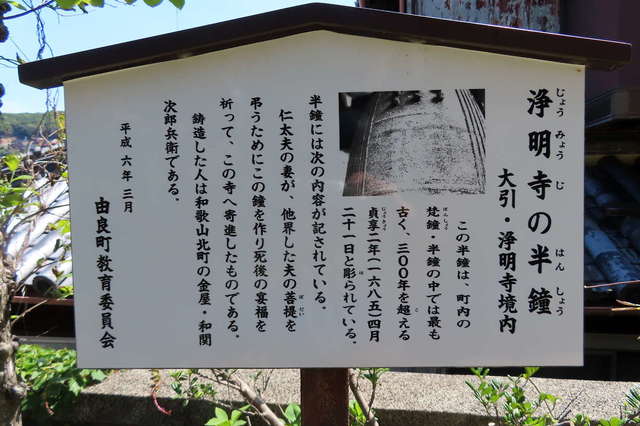 浄明寺の半鐘
じょうみょうじ はんしょう
大引・浄明寺境内
この半鐘は、町内の
梵鐘・半鐘の中では最も
ぼんしょう
古く、三〇〇年を超える
こ
貞享二年(一六八五)四月
じょうきょう
二十一日と彫られている。
ほ
半鐘には次の内容が記されている。
仁太夫の妻が、他界した夫の菩提を
ぼだい
弔うためにこの鐘を作り死後の宴福を
祈って、この寺へ寄進したものである。
鋳造した人は和歌山北町の金屋・和関
次郎兵衛である。
平成 六年 三月
由良町教育委員会